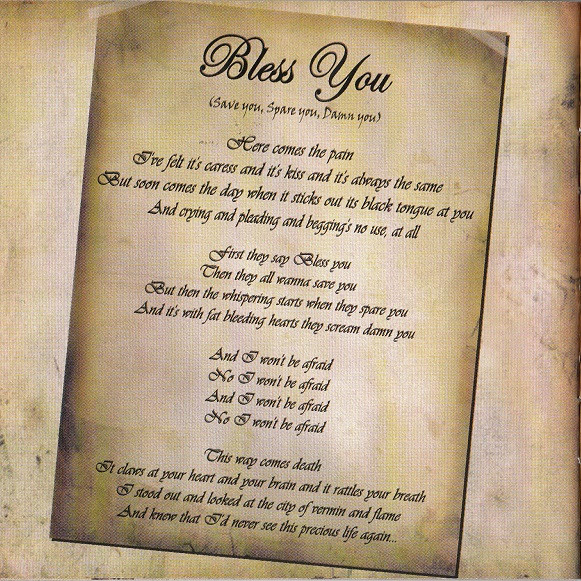 Bless You
(Save you, Spare you, Damn you)
Here comes the pain
I've felt it's caress and it's kiss and it's always the same
But soon comes the day when it sticks out its black tongue at you
And crying and pleading and begging's no use, at all
First they say Bless you
Then they all wanna save you
But then the whispering starts when they spare you
And it's with fat bleeding hearts they scream damn you
And I won't be afraid
No I won't be afraid
And I won't be afraid
No I won't be afraid
This way comes death
It claws at your heart and your brain and it rattles your breath
I stood out and looked at the city of vermin and flame
And knew that I'd never see this precious life again...